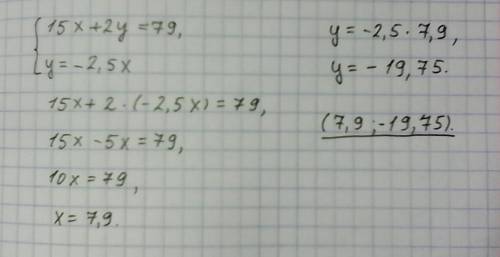 15x+2y=79,
y=-2,5x
15x+2·(-2,5x)=79,
15x-5x=79,
10x=79,
x=7,9.
y=-2,5·7,9,
y=-19,75.
(7,9;-19,75).